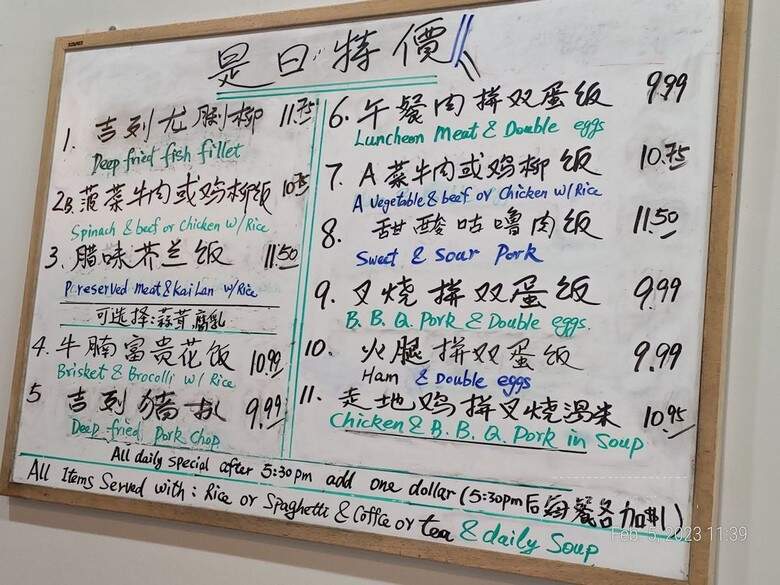 是日特價
1. 吉列龙脷柳 11.75
Deep fried fish fillet
2B. 菠菜牛肉或鸡柳饭 10.75
Spinach & beef or Chicken w/ Rice
3. 腊味芥兰饭 11.50
Preserved meat & Kai Lan w/ Rice
可选择:蒜茸腐乳
4. 牛腩富贵花饭 10.99
Brisket & Brocolli w/ Rice
5 吉列豬扒 9.99
Deep fried Pork Chop
6. 午餐肉拼双蛋饭 9.99
Luncheon Meat & Double eggs
7. A菜牛肉或鸡柳饭 10.75
A Vegetable & beef or Chicken w/ Rice
8. 甜酸咕噜肉饭 11.50
Sweet & Sour Pork
9. 叉烧拼双蛋饭 9.99
B.B.Q. Pork & Double eggs.
10. 火腿拼双蛋饭 9.99
Ham & Double eggs
11. 走地鸡拼叉烧湯米 10.95
Chicken & B.B.Q. Pork in Soup
All daily special after 5:30pm add one dollar (5:30pm后每餐各加$1)
All Items Served with: Rice or Spaghetti & Coffee or tea & daily Soup
Feb 5, 2023 11:39